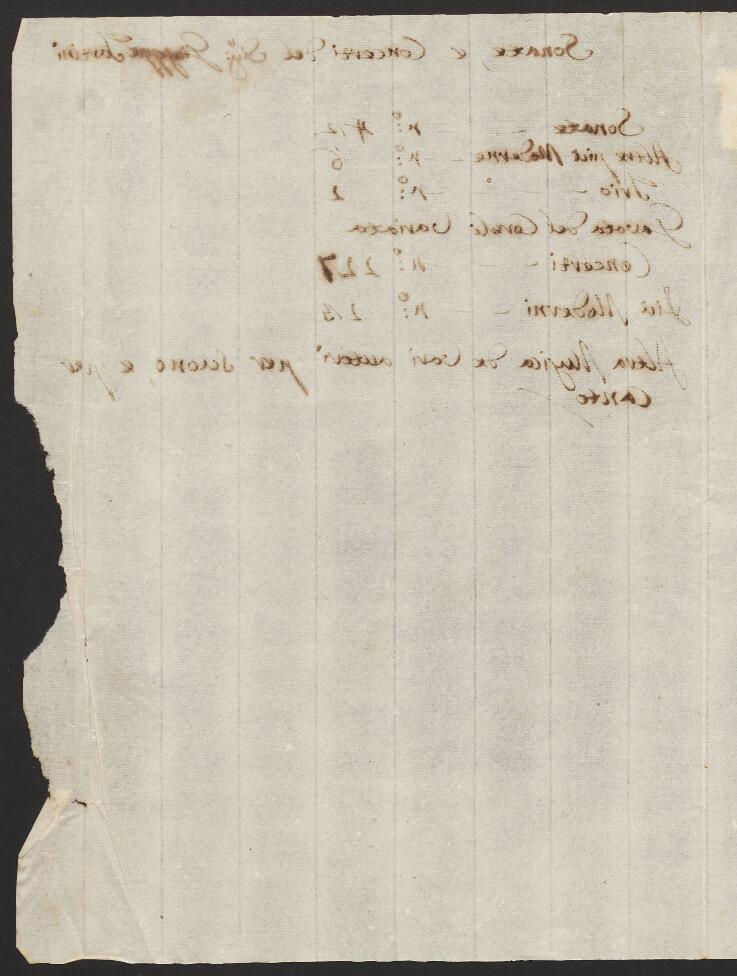 Sonate, e Concerti del Sigr. Giuseppe Tartini
Sonate — n:° 42
Altre più Moderne — n:° 6
Trio — n:° 2
Gavota del Coreli Variata
Concerti — n:° 227
Più Moderni — n:°
Altra Musica de vari autori per suono, e per
canto